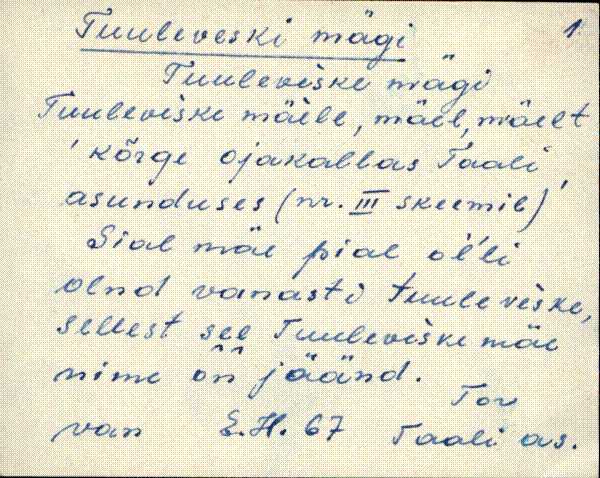 Tuuleveski mägi 1
Tuuleviske mägi
Tuuleviske mäele, mäel, mäelt
'kõrge ojakallas Taali
asunduses (nr. III skeemil)'
Sial mäe pial ol'li
olnd vanasti tuuleviske,
sellest see Tuuleviske mäe
nime on jäänd.
Tor
van E.H. 67 Taali as.